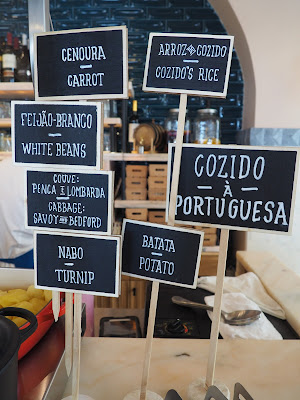 CENOURA
CARROT
ARROZ DE COZIDO
COZIDO'S RICE
FEIJÃO-BRANCO
WHITE BEANS
COUVE:
PENCA E LOMBARDA
CABBAGE:
SAVOY AND BEDFORD
COZIDO
À
PORTUGUESA
NABO
TURNIP
BATATA
POTATO